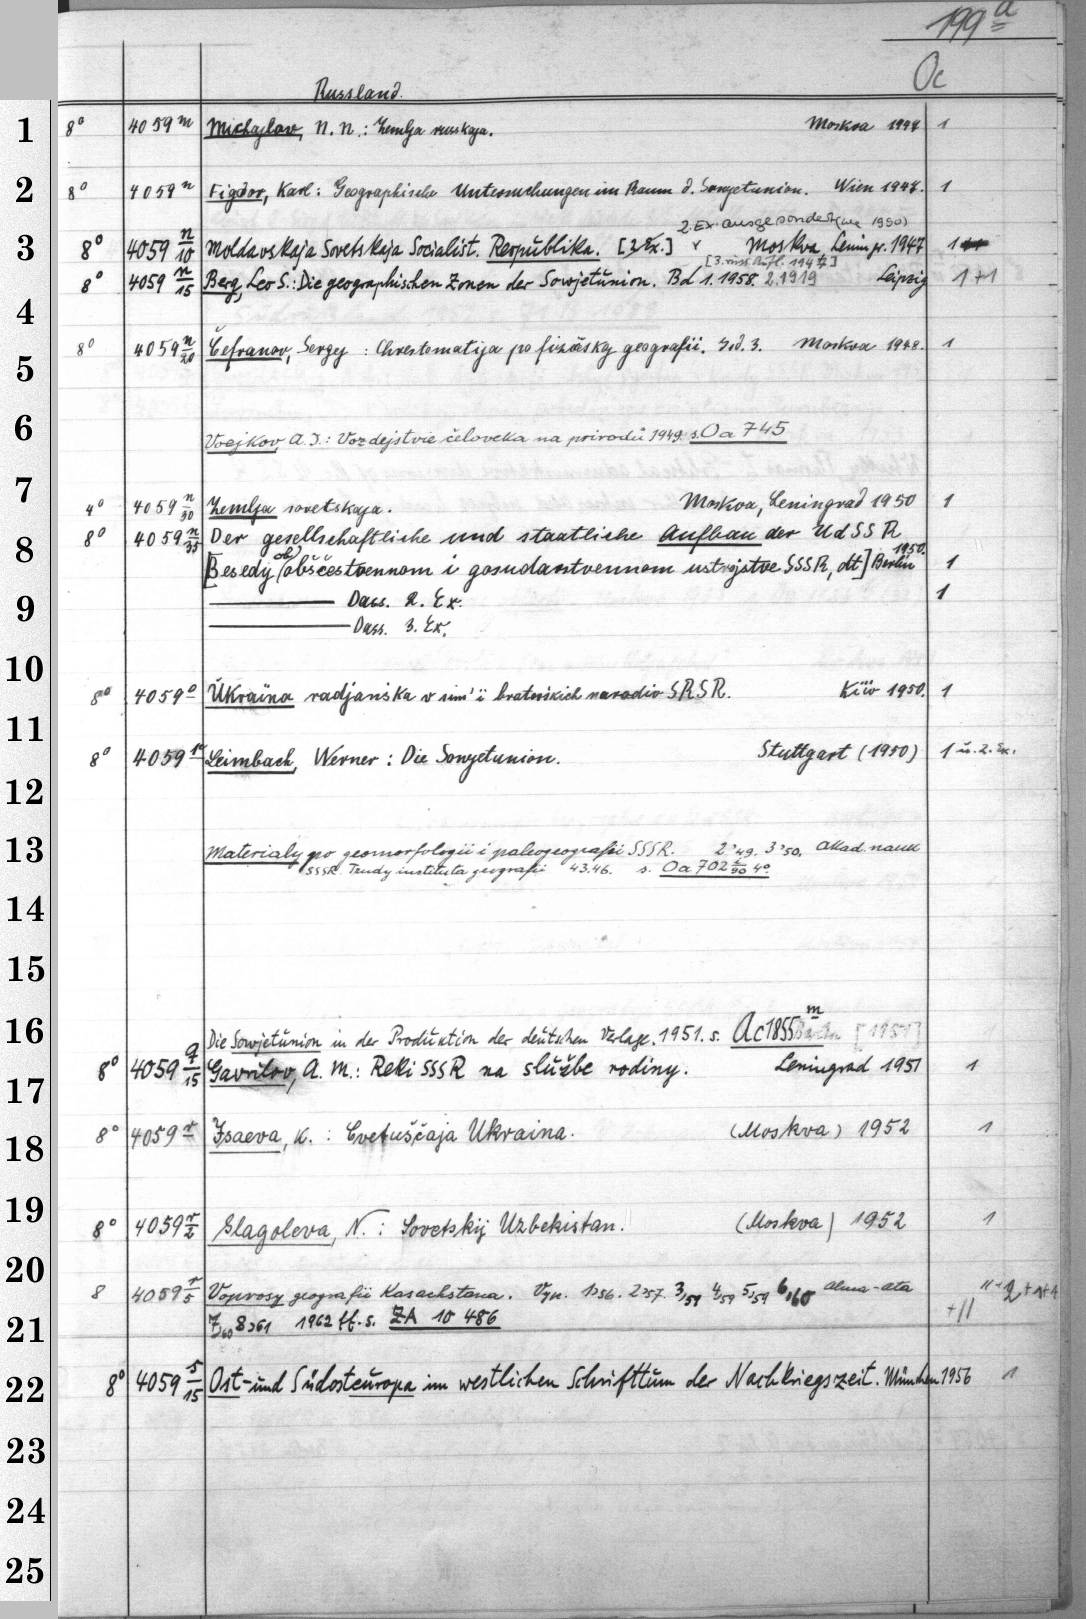 199 a
Oc
Russland.
1 8° 4059 m Michajlov, N. N.: Zemlja russkaja. Moskva 1947 1
2 8° 4059 n Figdor, Karl: Geographische Untersuchungen im Raum d. Sowjetunion. Wien 1947. 1
2. Ex. ausgesondert 1950)
3 8° 4059 n/10 Moldavskaja Sovetskaja Socialist. Respublika. [2 Ex.] Moskva, Leningr. 1947 1
[3. russ. Aufl. 1947]
8° 4059 n/15 Berg, Leo S.: Die geographischen Zonen der Sowjetunion. Bd 1. 1958. 2. 1959 Leipzig 1+1
4
5 8° 4059 n/20 Čefranov, Sergej : Chrestomatija po fizičesky geografii. Izd. 3. Moskva 1948. 1
6 Voejkov, A. I.: Vozdejstvie čeloveka na prirodu 1949. s. Oa 745
7 4° 4059 n/30 Zemlja sovetskaja. Moskva, Leningrad 1950 1
8 8° 4059 n/35 Der gesellschaftliche und staatliche Aufbau der UdSSR
[Besedy ob obščestvennom i gosudarstvennom ustrojstve SSSR, dt] Berlin 1950. 1
9 Dass. 2. Ex. 1
Dass. 3. Ex.
10 8° 4059 o Ukraïna radjanśka v sim'ï bratnśkich narodiv SRSR. Kiïv 1950. 1
11 8° 4059 Leimbach, Werner: Die Sowjetunion. Stuttgart (1950) 1 u. 2. Ex.
12
13 Materialy po geomorfologii i paleogeografii SSSR. 2'49. 3'50. Akad. nauk
SSSR. Trudy instituta geografii 43.46. s. Oa 702 /30 4°
14
15
16 Die Sowjetunion in der Produktion der deutschen Verlage. 1951. s. Ac 1855 m Berlin [1951]
17 8° 4059 q/15 Gavrilov, A. M.: Reki SSSR na službe rodiny. Leningrad 1951 1
18 8° 4059 r Isaeva, K. : Cvetuščaja Ukraina. (Moskva) 1952 1
19 8° 4059 r/2 Glagoleva, N. : Sovetskij Uzbekistan. (Moskva) 1952 1
20 8 4059 r/5 Voprosy geografii Kasachstana. Vyp. 1,56. 2,57. 3,59 4,59 5,59 6,60 Alma-ata
21 7,60 8,61 1962 ff. s. ZA 10 486 +11
22 8° 4059 s/15 Ost- und Südosteuropa im westlichen Schrifttum der Nachkriegszeit. München 1956 1
23
24
25